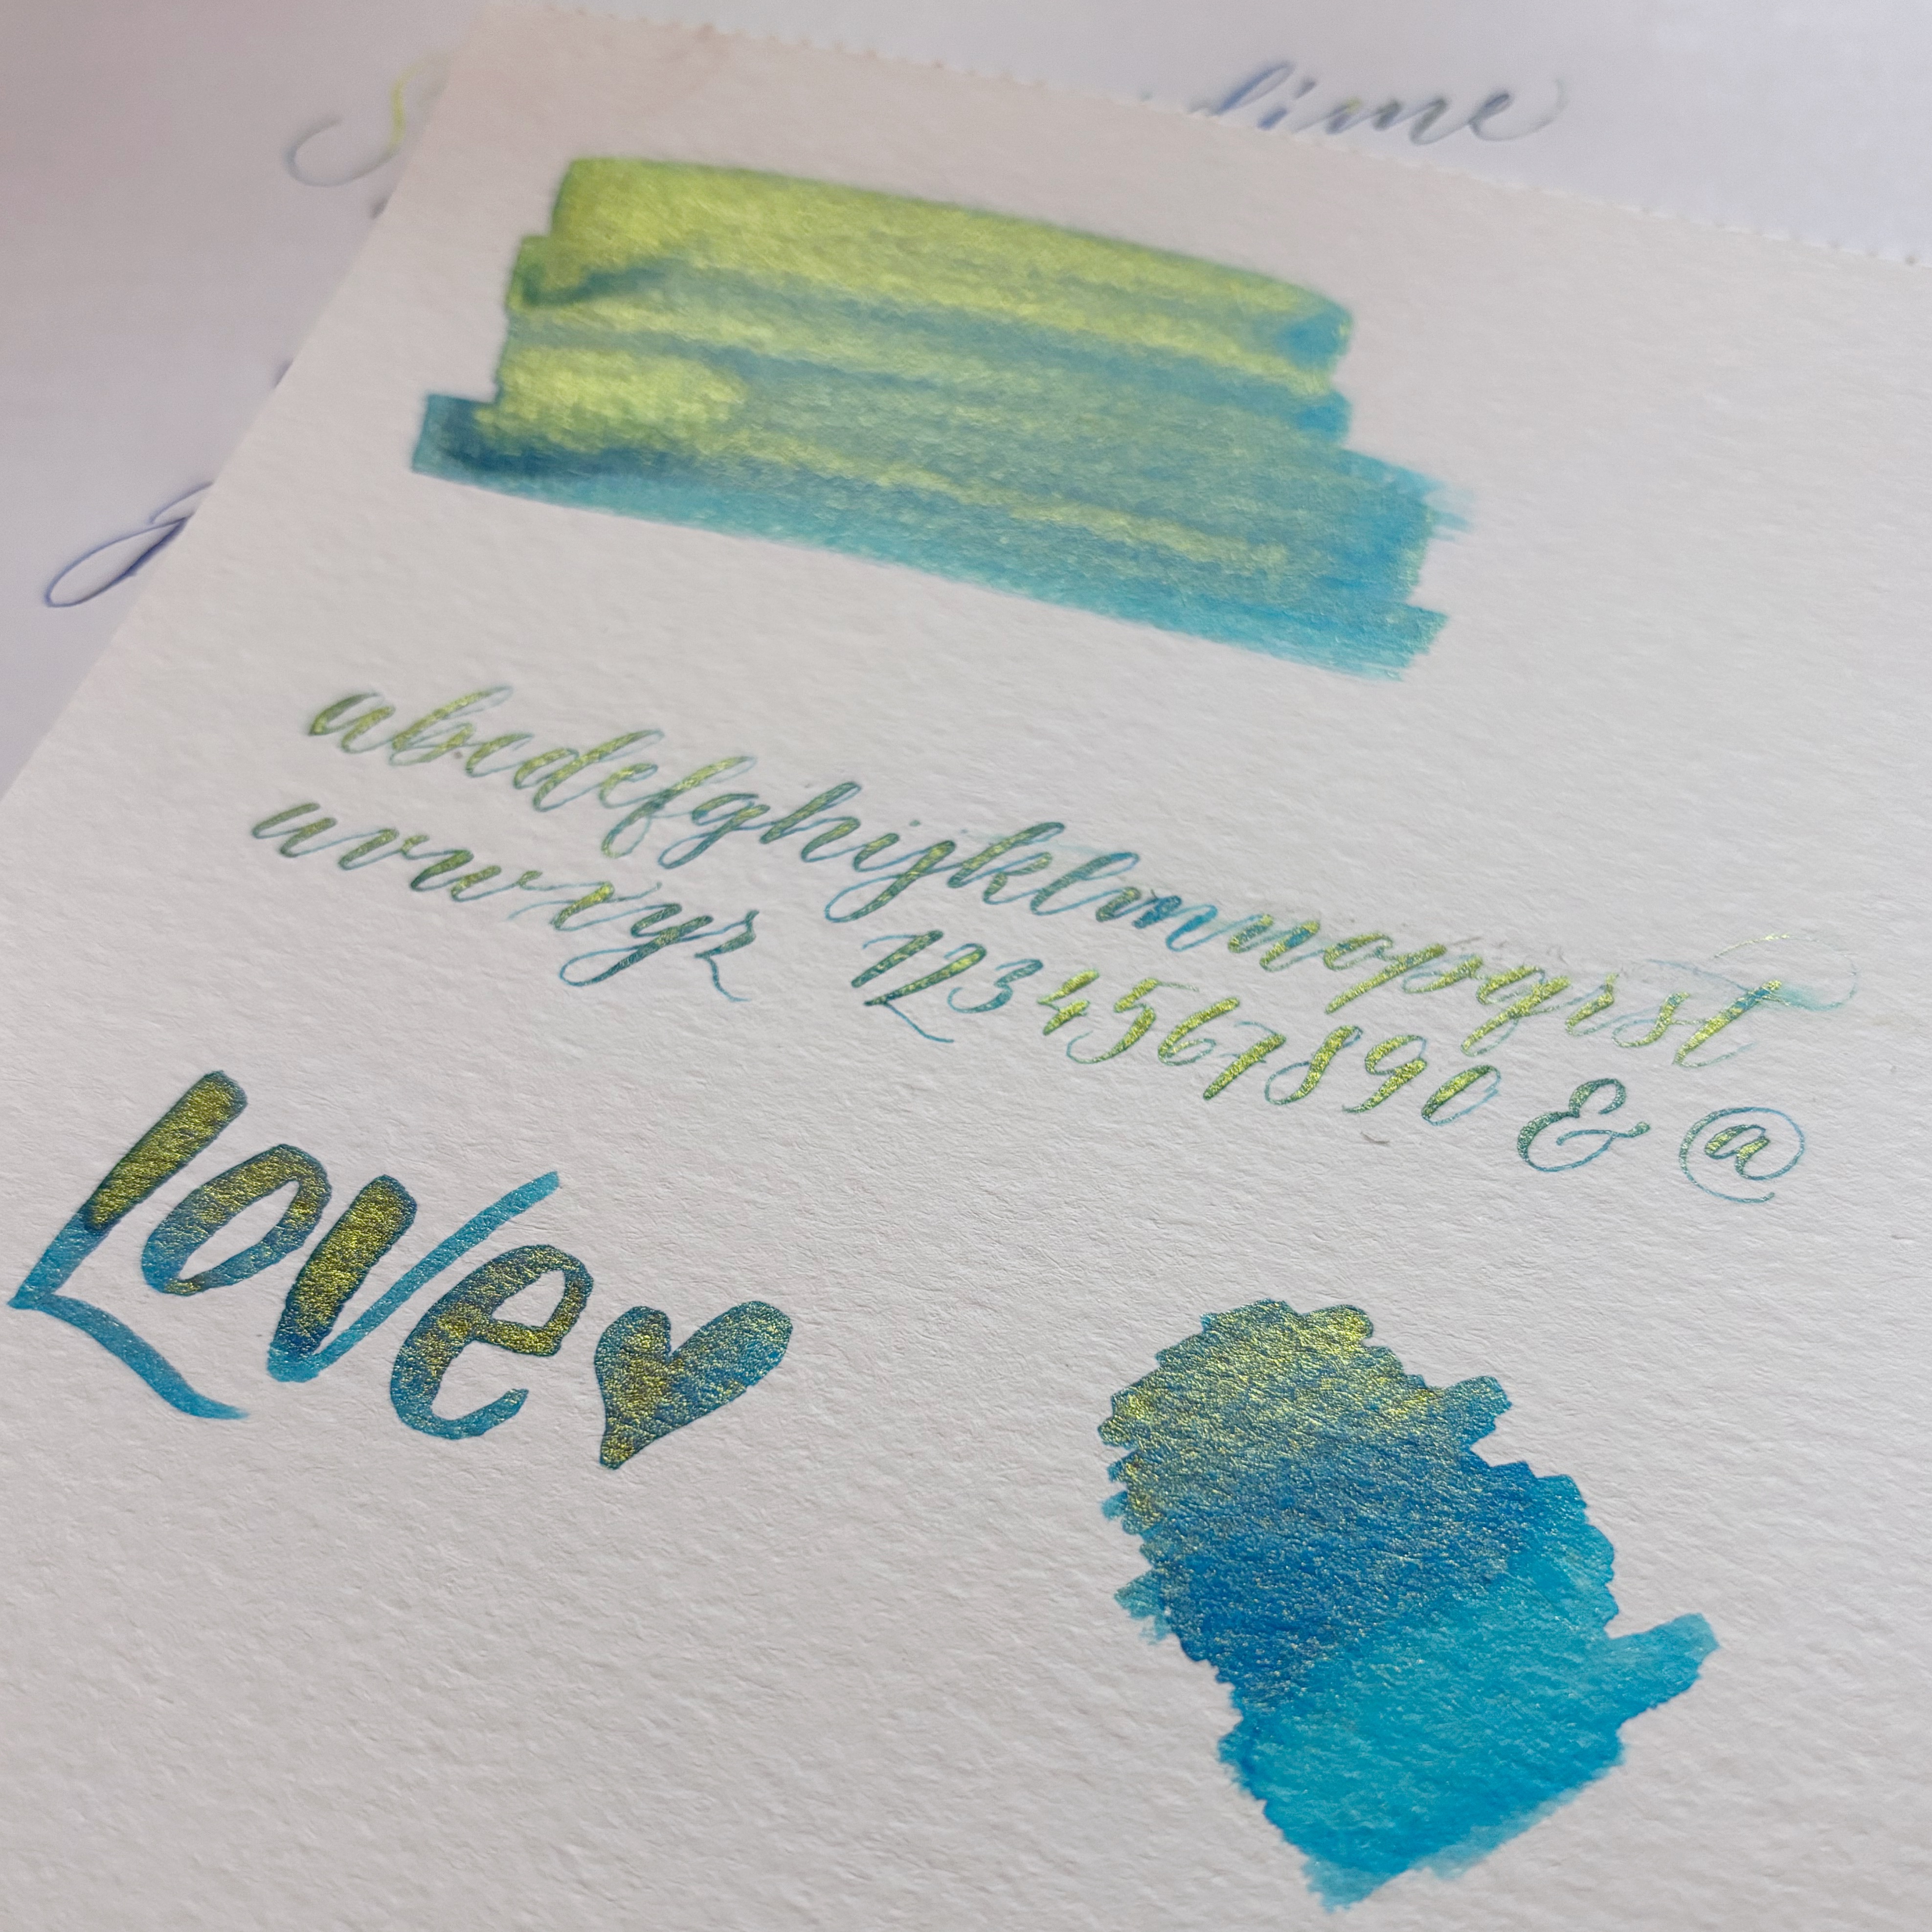 abcdefghijklmnopqrst
uvwxyz 1234567890 & @
Love